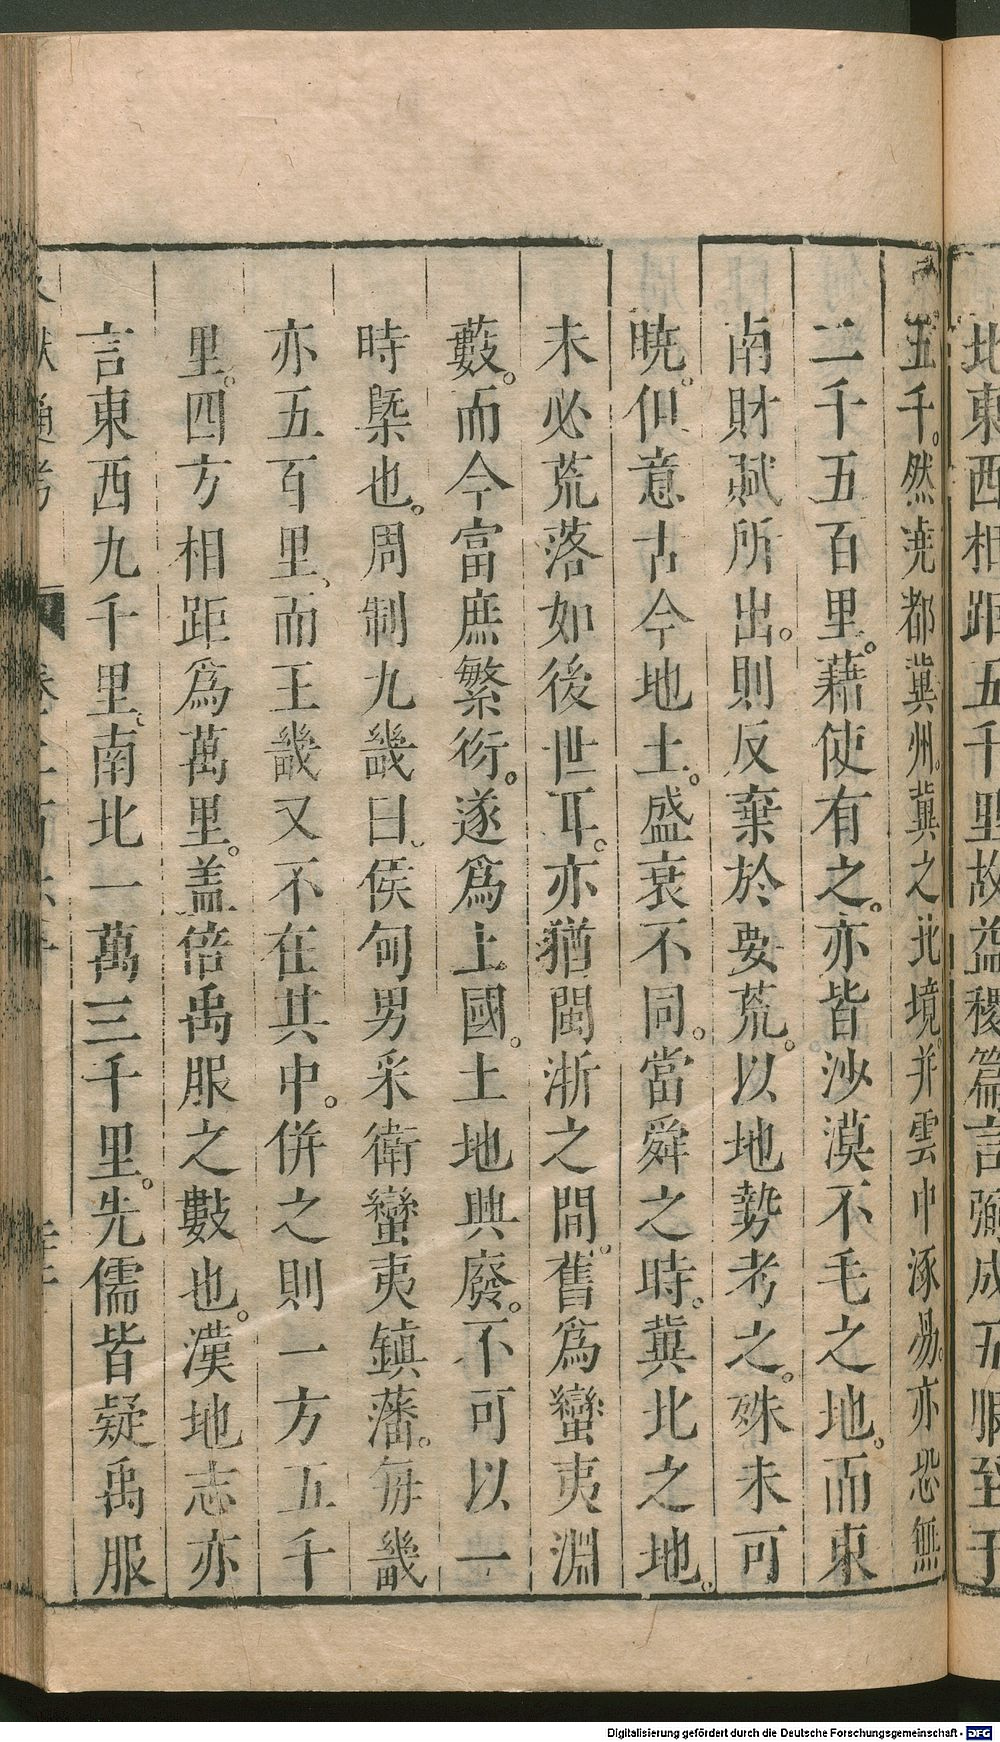 地東西相距五千里故益稷篇言弼成五服至于
五千。然堯都冀州。冀之北境。并雲中涿易。亦恐無
二千五百里。藉使有之。亦皆沙漠不毛之地。而東
南財賦所出。則反棄於要荒。以地勢考之。殊未可
曉。但意古今地土。盛衰不同。當舜之時。冀北之地。
未必荒落如後世耳。亦猶閩浙之間。舊為蠻夷淵
藪。而今富庶繁衍。遂為上國。土地興廢。不可以一
時槩也。周制九畿曰、侯甸男采衛蠻夷鎮藩。每畿
亦五百里、而王畿又不在其中。併之則一方五千
里。四方相距爲萬里。蓋倍禹服之數也。漢地志亦
言東西九千里、南北一萬三千里。先儒皆疑禹服
通考
Digitalisierung gefördert durch die Deutsche Forschungsgemeinschaft - DFG